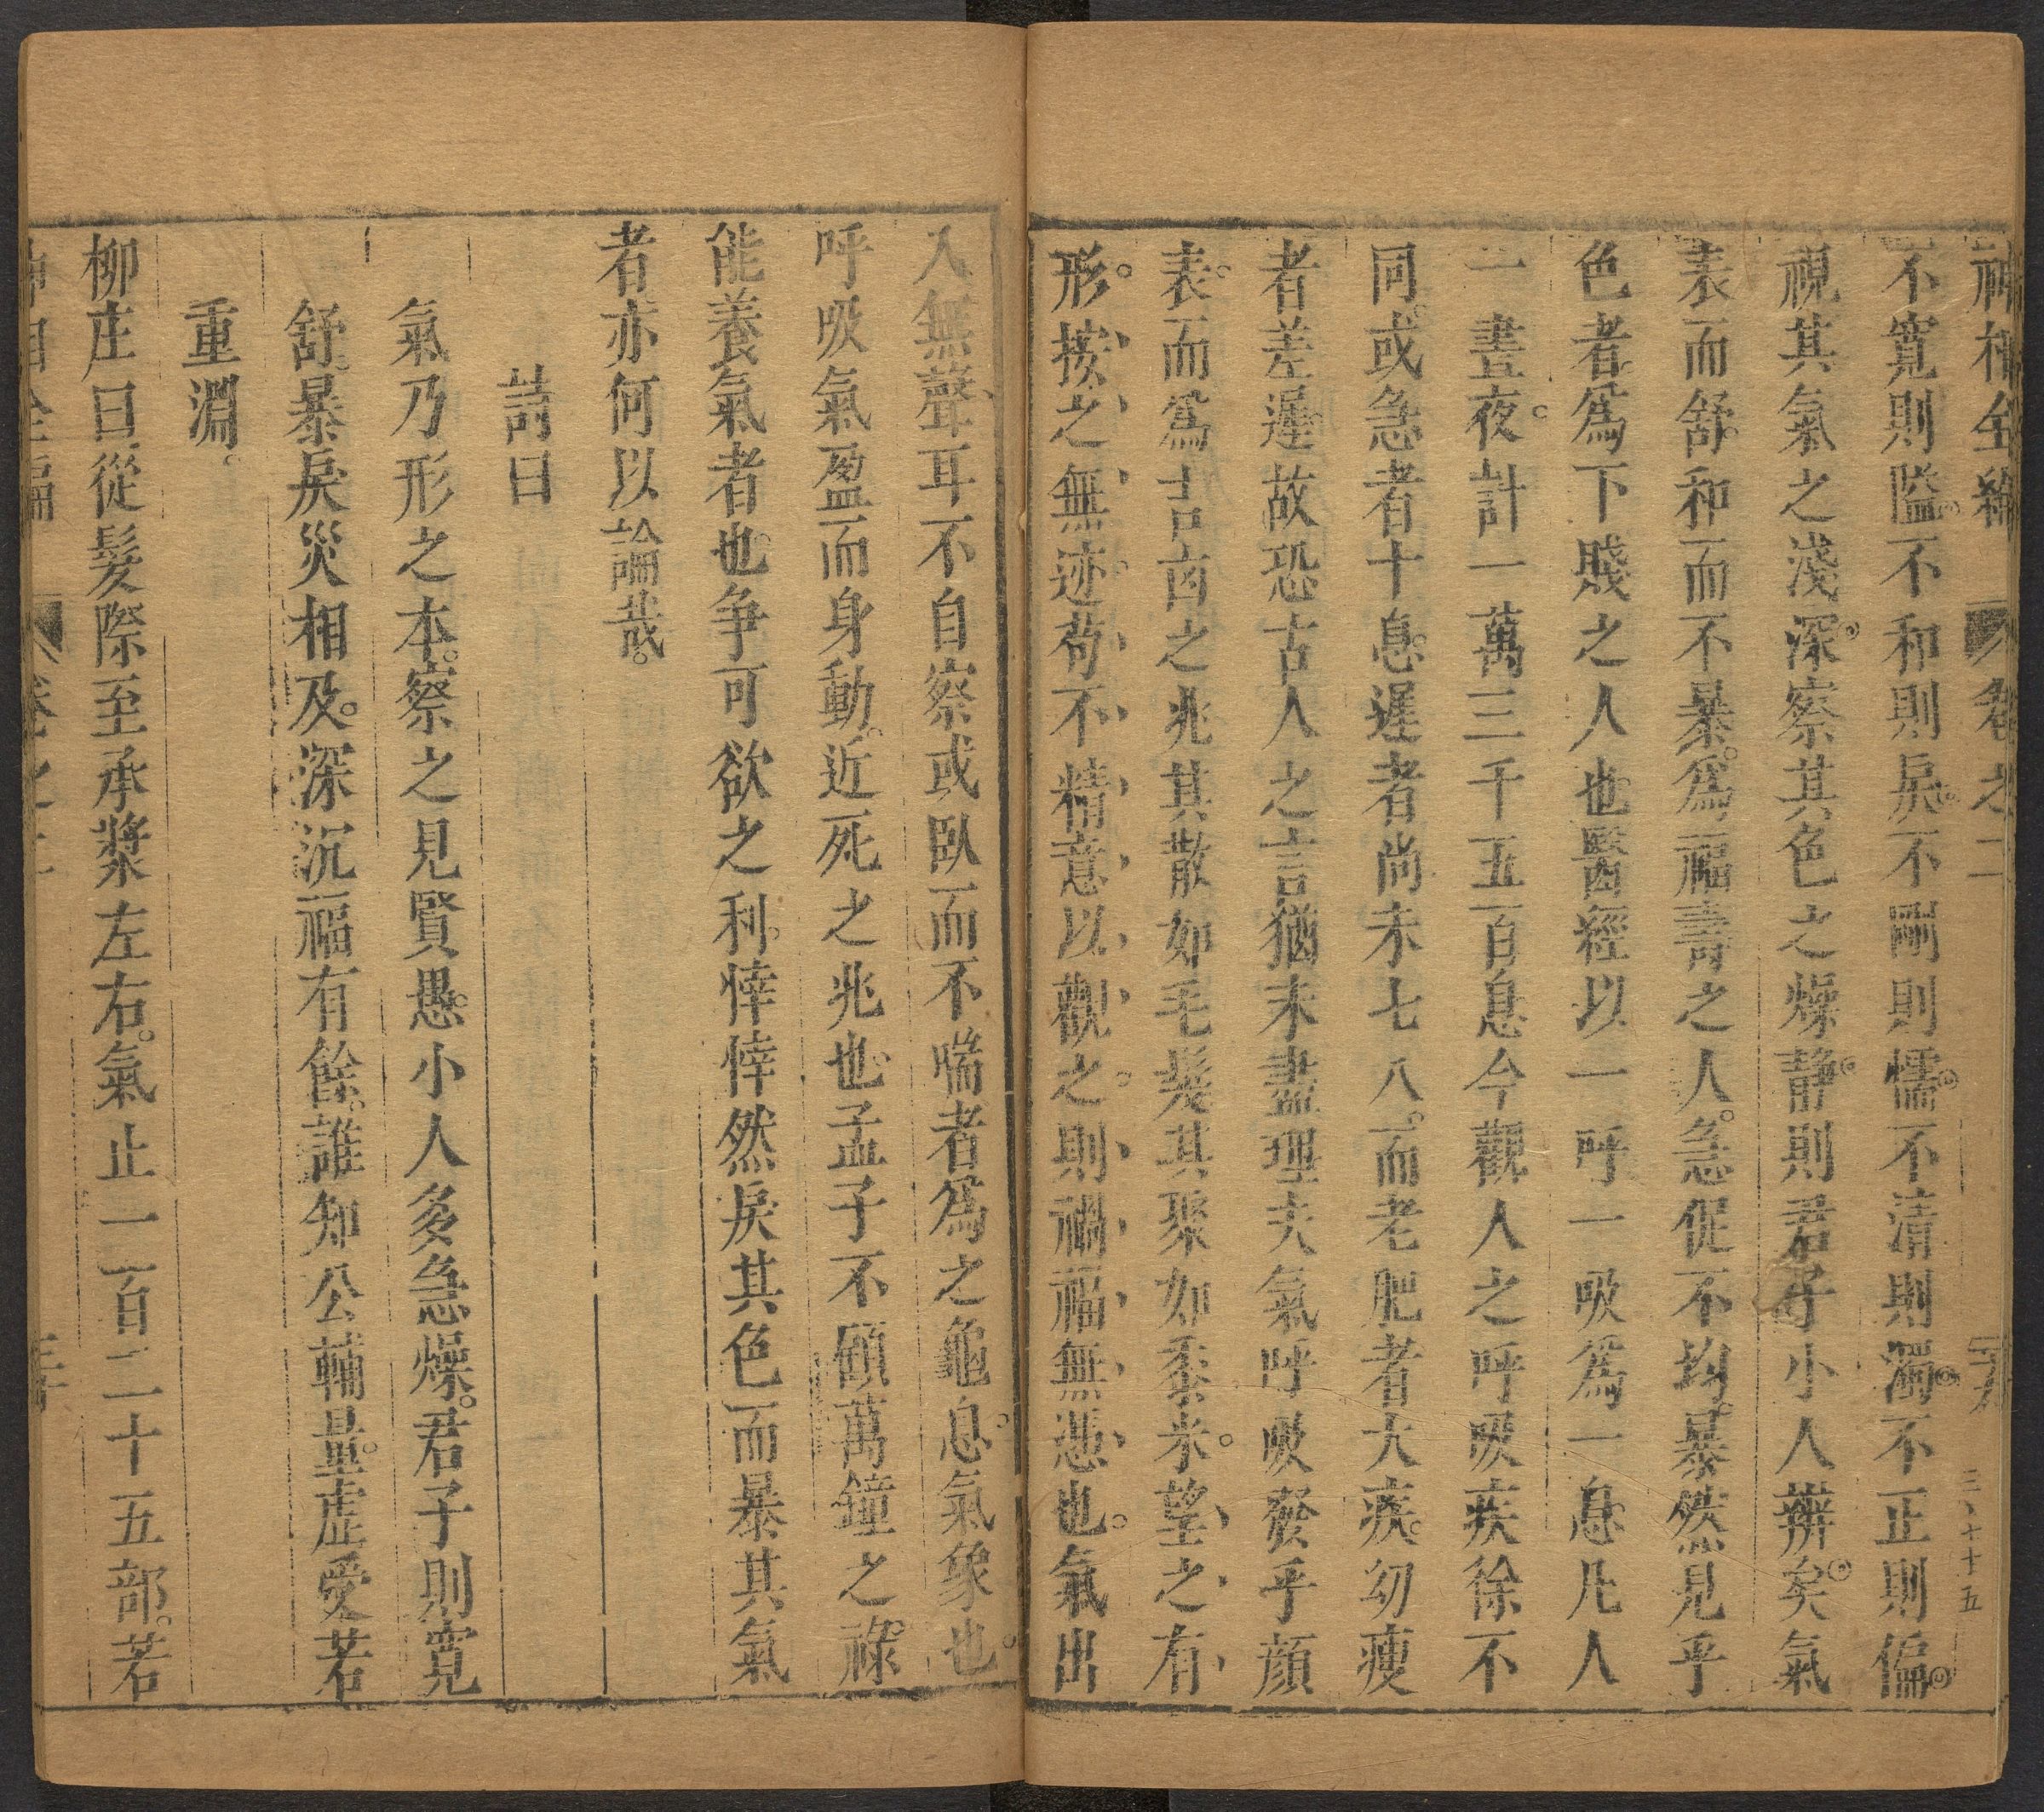 神相全編 卷之二
不寬則隘。不和則戾。不剛則懦。不清則濁。不正則偏。
視其氣之淺深。察其色之燥静。則君子小人辨矣。氣
表而舒和而不暴。爲福壽之人。急促不均。暴然見乎
色者。爲下賤之人也。醫經以一呼一吸爲一息。凡人
一晝夜。計一萬三千五百息。今觀人之呼吸疾徐不
同。或急者十息。遲者尚未七八。而老肥者大疾。幼瘦
者差遲。故恐古人之言猶未盡理。夫氣呼吸發乎顔
表。而爲吉凶之兆。其散如毛髮。其聚如黍米。望之有
形。按之無迹。苟不精意以觀之。則禍福無憑也。氣出
入無聲。耳不自察。或臥而不喘者。爲之龜息。氣象也。
呼吸氣盈而身動。近死之兆也。孟子不顧萬鐘之祿。
能養氣者也。争可欲之利。悻悻然戾其色。而暴其氣
者。亦何以論哉。
詩曰
氣乃形之本。察之見賢愚。小人多急燥。君子則寛
舒。暴戾災相及。深沉福有餘。誰知公輔量。虚受若
重淵。
柳庄曰。從髮際至承漿左右。氣止一百二十五部。若
神相全編 卷之二 三十